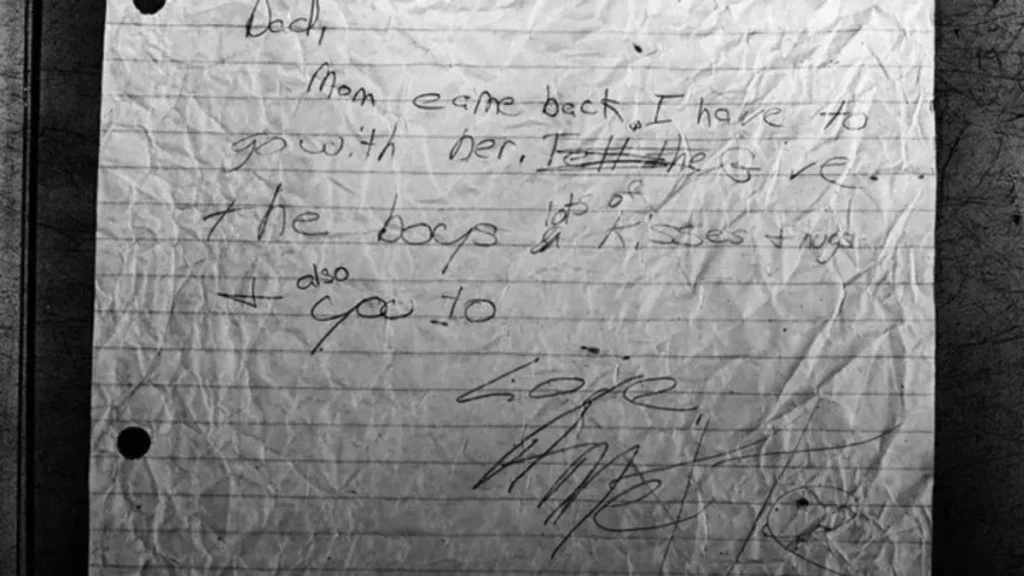 Dad,
Mom came back. I have to
go with her. Give
the boys lots of kisses + hugs
+ also you to
Love,